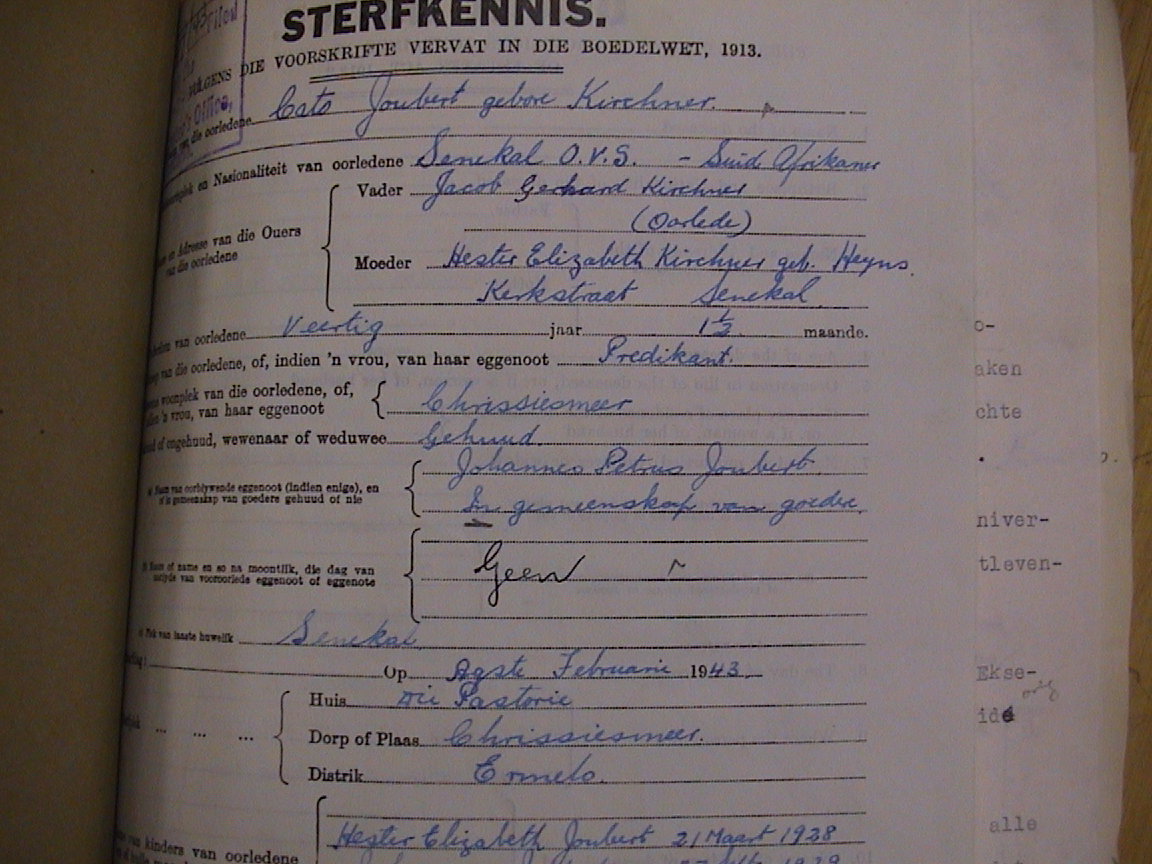 STERFKENNIS.
VOLGENS DIE VOORSKRIFTE VERVAT IN DIE BOEDELWET, 1913.
die oorledene Cato Joubert gebore Kirchner.
en Nasionaliteit van oorledene Senekal O.V.S. - Suid Afrikaner
Vader Jacob Gerhard Kirchner
(Oorlede)
en Adresse van die Ouers
van die oorledene
Moeder Hester Elizabeth Kirchner geb. Heyns.
Kerkstraat Senekal
van oorledene Veertig jaar 1½ maande.
van die oorledene, of, indien 'n vrou, van haar eggenoot Predikant.
woonplek van die oorledene, of,
'n vrou, van haar eggenoot Chrissiesmeer
of ongehuud, wewenaar of weduwee Gehuud.
Naam van oorblywende eggenoot (indien enige), en
of in gemeenskap van goedere gehuud of nie
Johannes Petrus Joubert
In gemeenskap van goedere.
Naam of name en so na moontlik, die dag van
van vooroorlede eggenoot of eggenote
Geen
Plek van laaste huwelik Senekal.
Op Agste Februarie 1943.
Huis Die Pastorie
Dorp of Plaas Chrissiesmeer.
Distrik Ermelo.
van kinders van oorledene
Hester Elizabeth Joubert 21 Maart 1938
o-
aken
chte
niver-
tleven-
Ekse-
alle